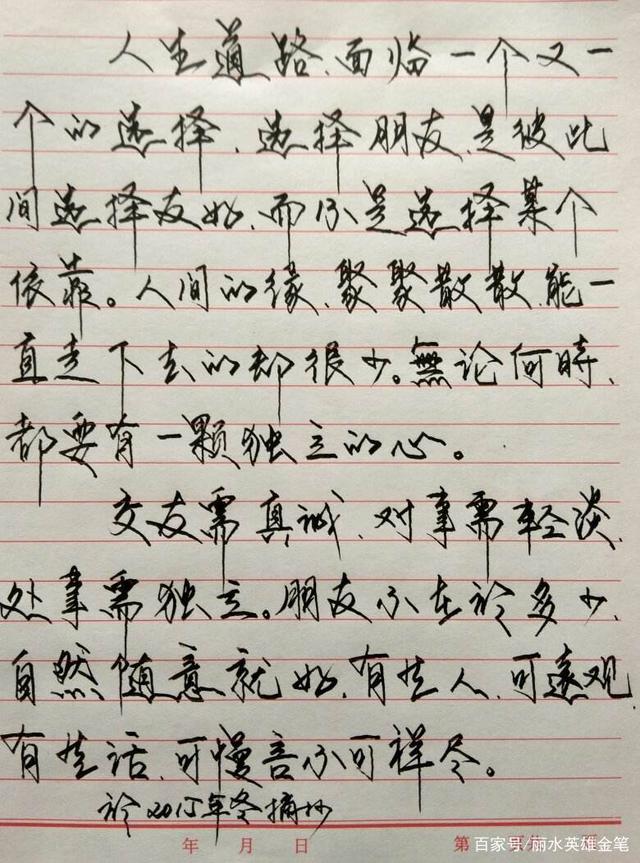 人生道路、面临一个又一
个的选择、选择朋友、是彼此
间选择友好、而不是选择某个
依靠。人间的缘、聚聚散散、能一
直走下去的却很少。無论何時、
都要有一颗独立的心。
交友需真诚、对事需轻淡、
处事需独立。朋友不在於多少、
自然随意就好、有些人、可远观、
有些话、可慢言不可祥尽。
於2015年冬摘抄
年 月 日 第 页
百家号/丽水英雄金笔